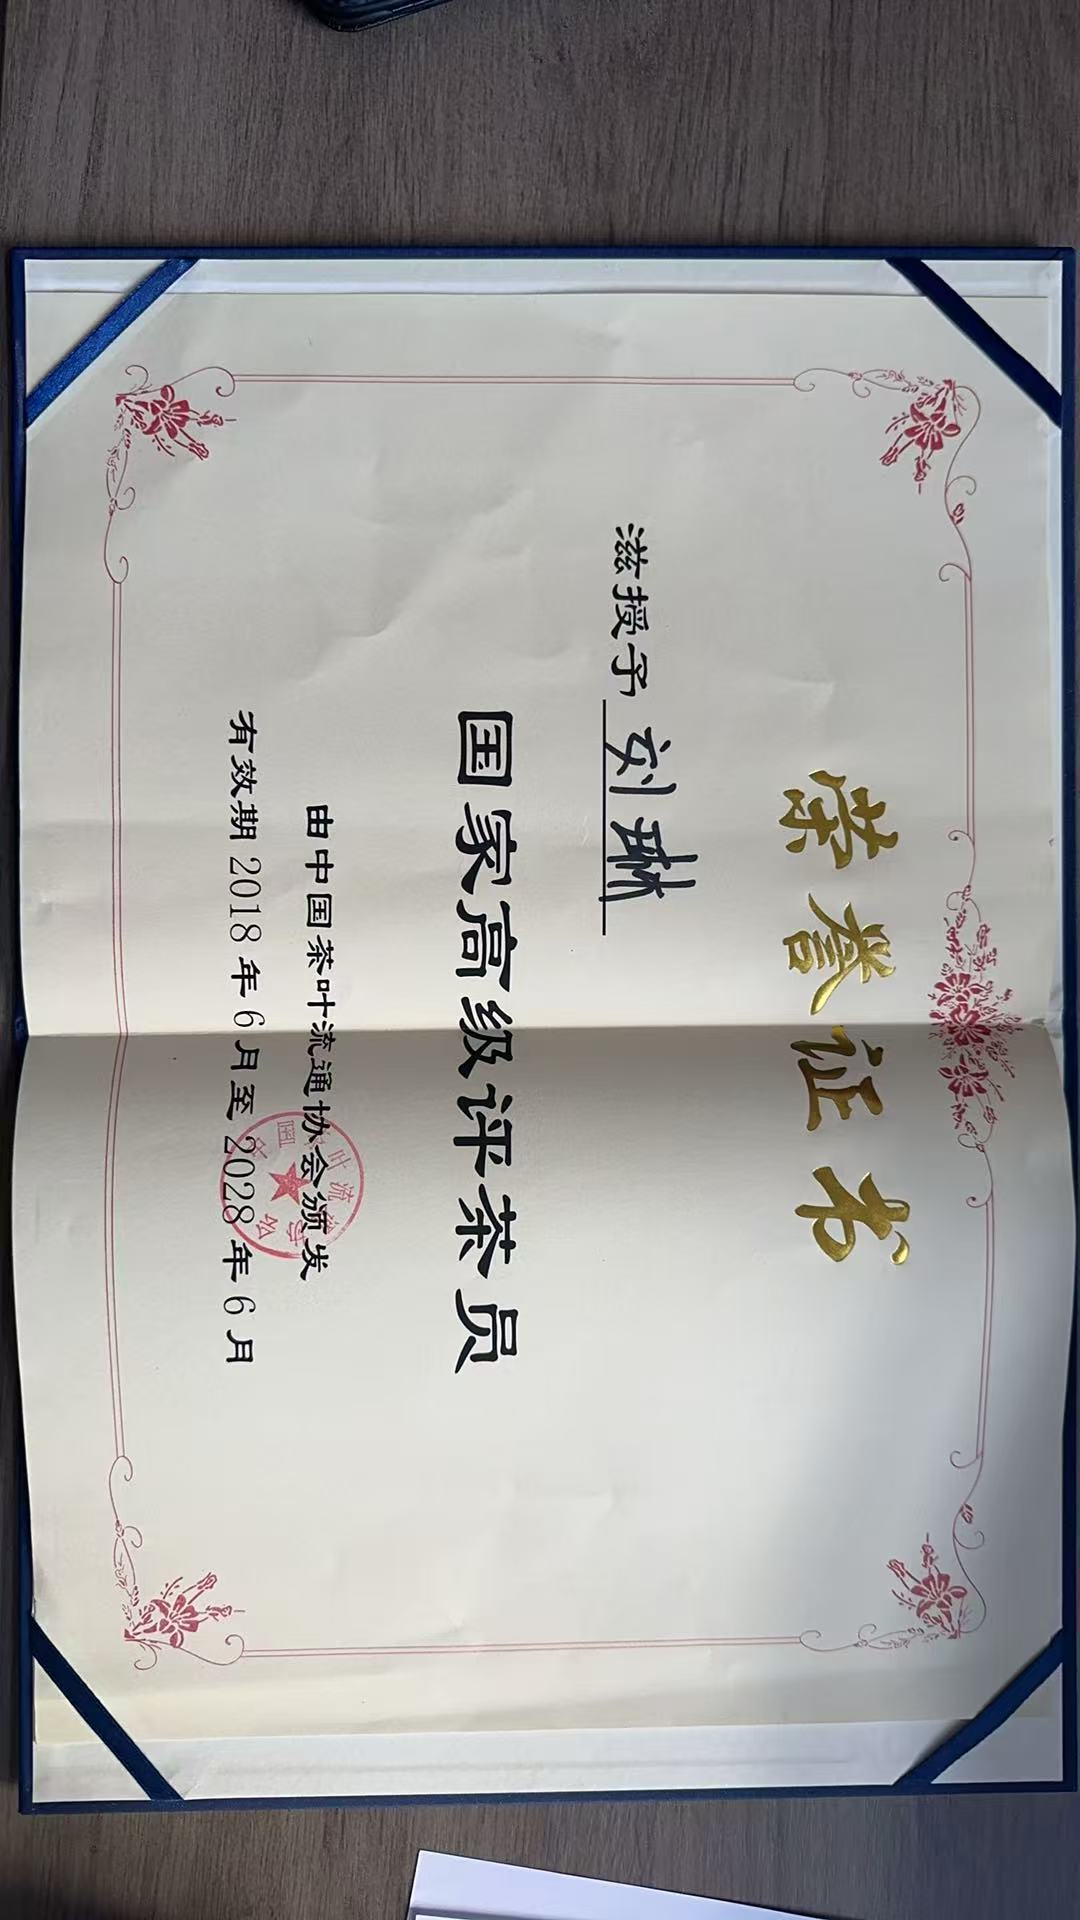 荣誉证书
滋授予 刘琳
国家高级评茶员
由中国茶叶流通协会颁发
有效期2018年6月至2028年6月